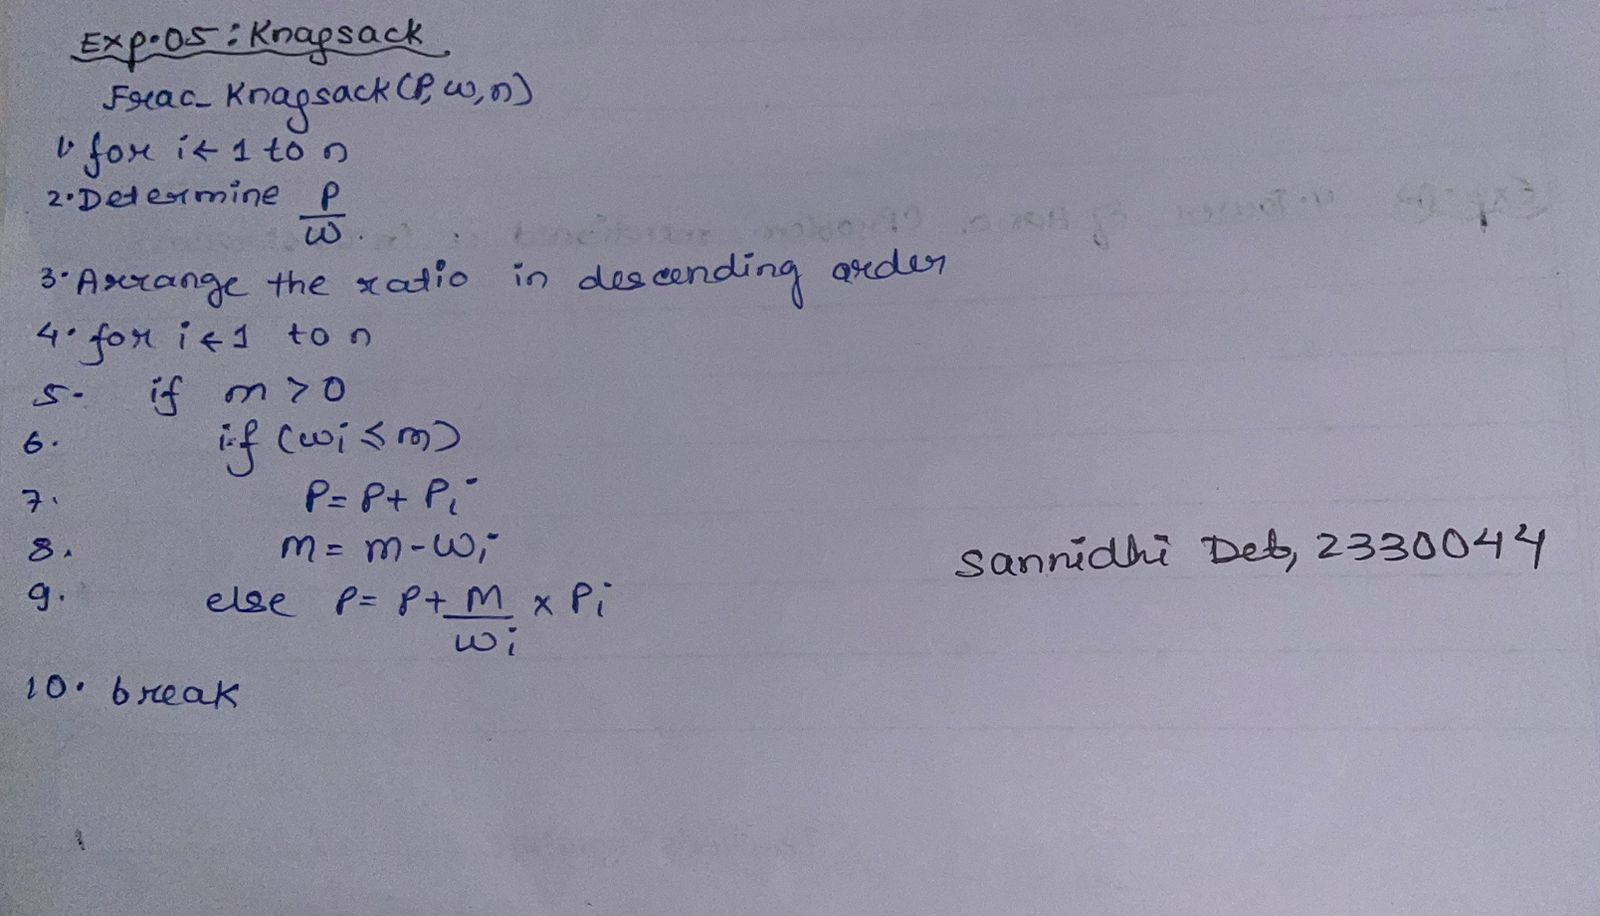 Exp.05: Knapsack
Frac_Knapsack(P, w, n)
1. for i ← 1 to n
2. Determine P/w.
3. Arrange the ratio in descending order
4. for i ← 1 to n
5. if m > 0
6. if (wi ≤ m)
7. P = P + Pi
8. m = m - wi
9. else P = P + M/wi × Pi
10. break
Sannidhi Deb, 2330044